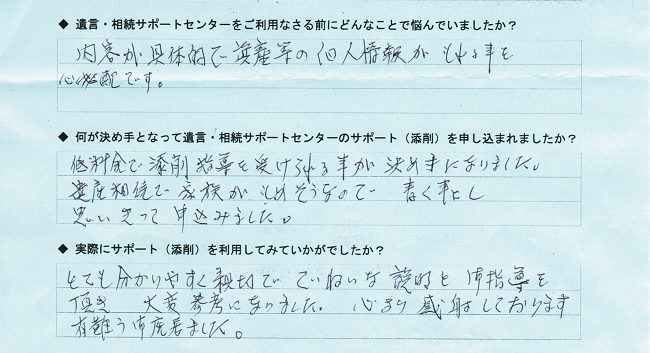 ◆ 遺言・相続サポートセンターをご利用なさる前にどんなことで悩んでいましたか？
内容が具体的で資産等の個人情報がもれる事を
心配です。
◆ 何が決め手となって遺言・相続サポートセンターのサポート（添削）を申し込まれましたか？
低料金で添削指導を受けられる事が決め手になりました。
遺産相続で家族がもめそうなので 書く事とし
思い立って申込みました。
◆ 実際にサポート（添削）を利用してみていかがでしたか？
とても分かりやすく親切でていねいな説明と御指導を
頂き 大変参考になりました。心より感謝しております
有難う御座居ました。